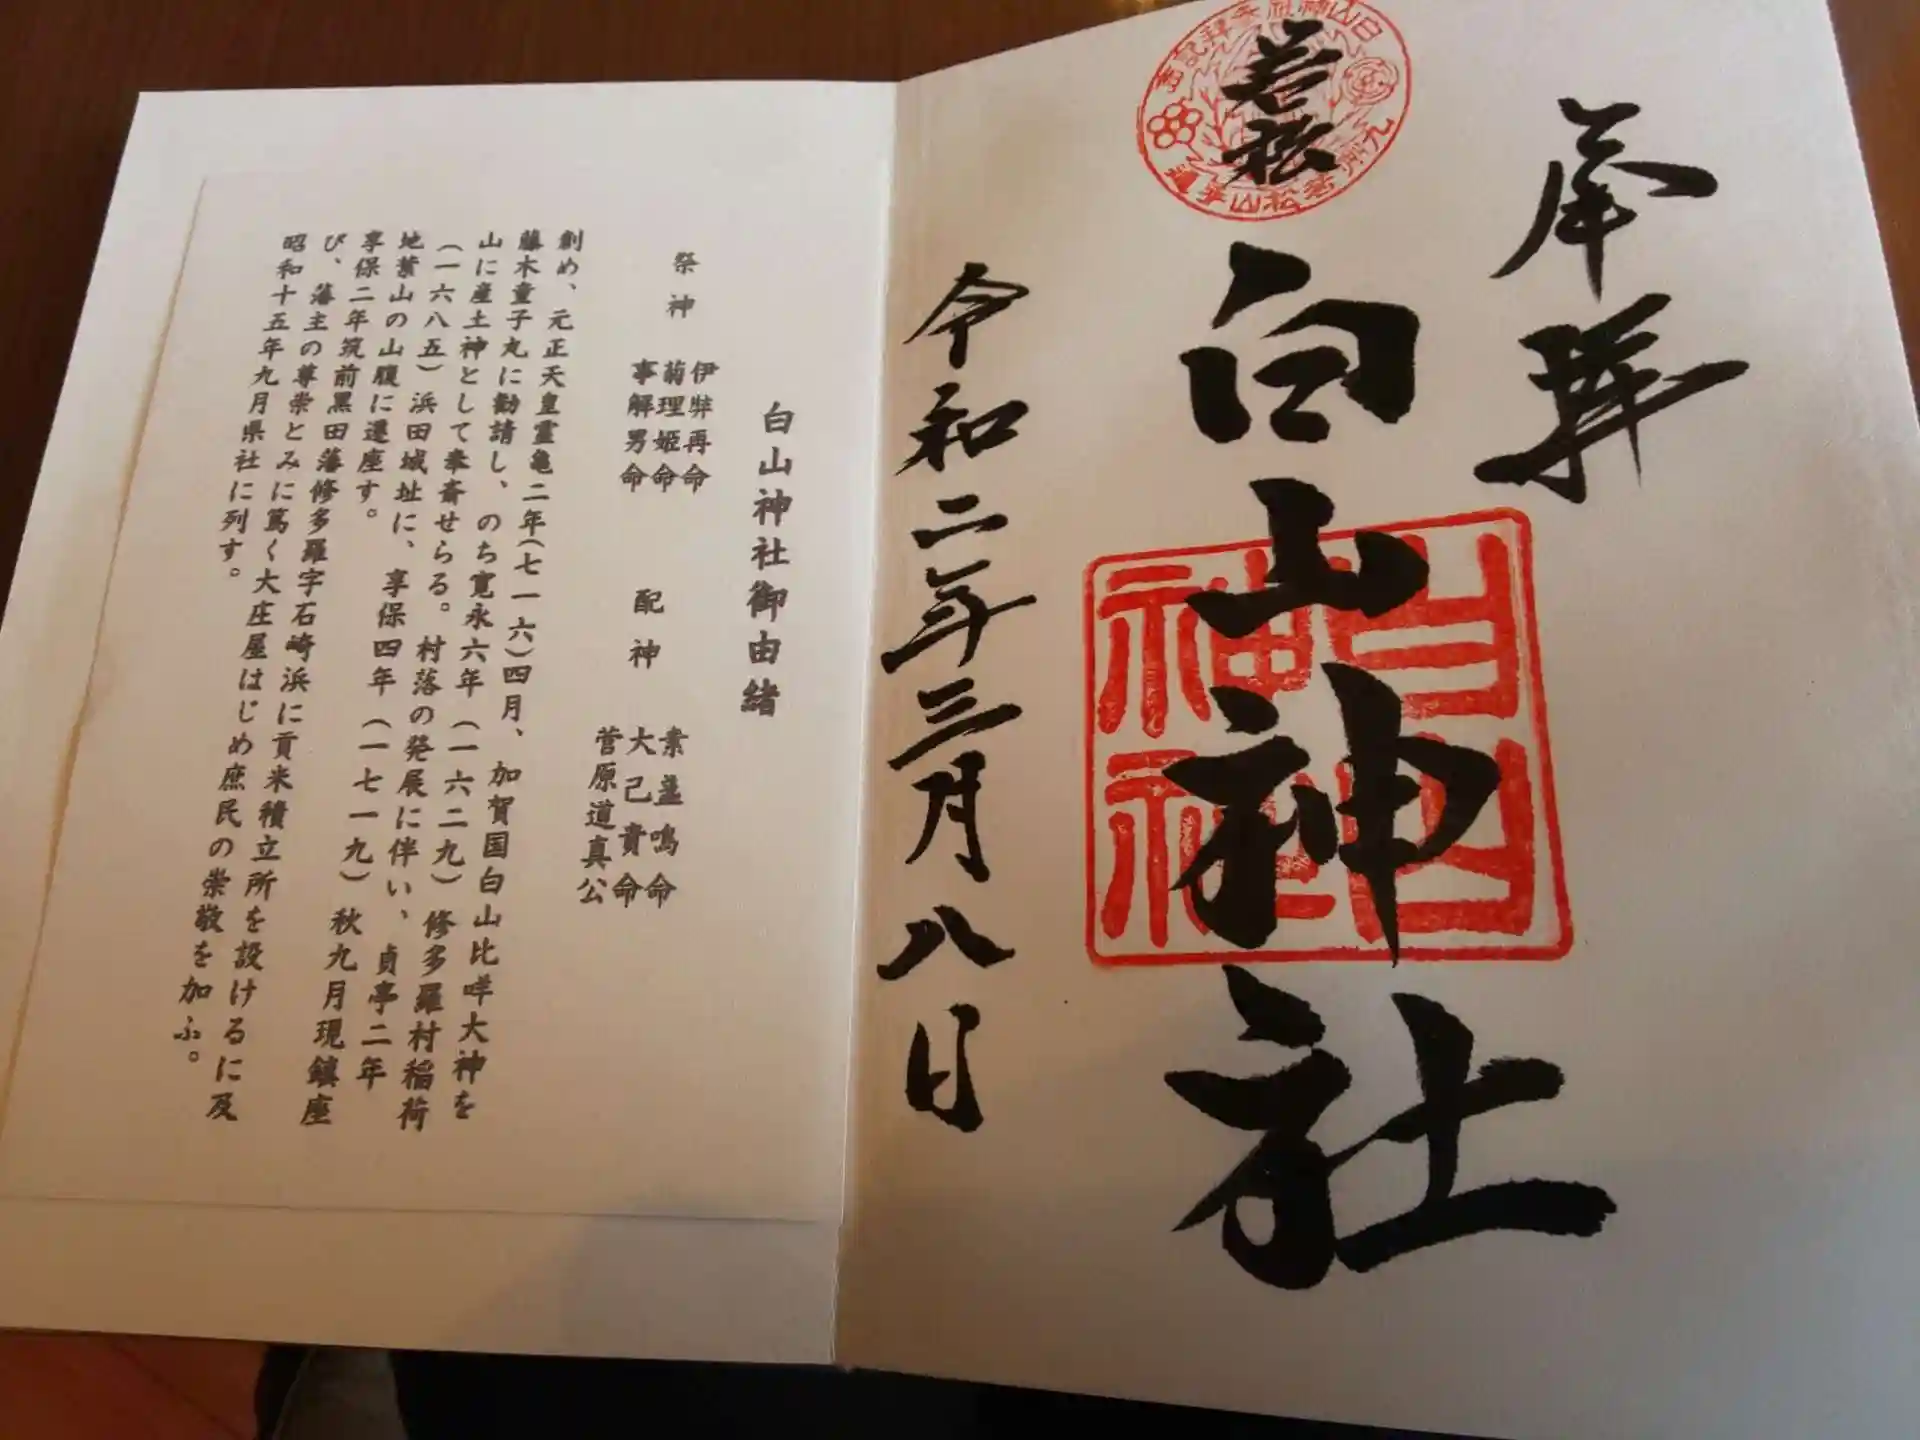 奉拝
若松
白山神社
白山神社
令和二年三月八日
白山神社御由緒
祭神
伊弉再命
菊理姫命
事解男命
配神
素盞鳴命
大己貴命
菅原道真公
創め、元正天皇霊亀二年(七一六)四月、加賀国白山比咩大神を
藤木童子丸に勧請し、のち寛永六年（一六二九）修多羅村稲荷
山に産土神として奉斎せらる。村落の発展に伴い、貞亭二年
（一六八五）浜田城址に、享保四年（一七一九）秋九月現鎮座
地葉山の山腹に遷座す。
享保二年筑前黒田藩修多羅字石崎浜に貢米積立所を設けるに及
び、藩主の尊崇とみに篤く大庄屋はじめ庶民の崇敬を加ふ。
昭和十五年九月県社に列す。